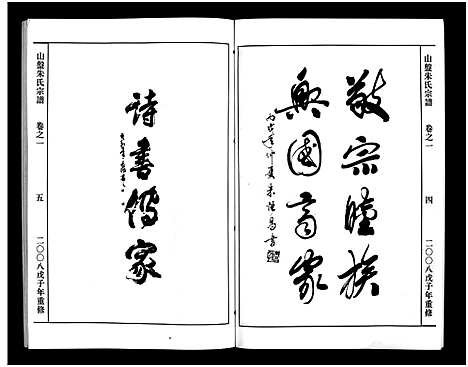 山盤朱氏宗譜 卷之一 四 二〇〇八戊子年重修
敬宗睦族
興國齊家
詩書傳家
山盤朱氏宗譜 卷之一 五 二〇〇八戊子年重修